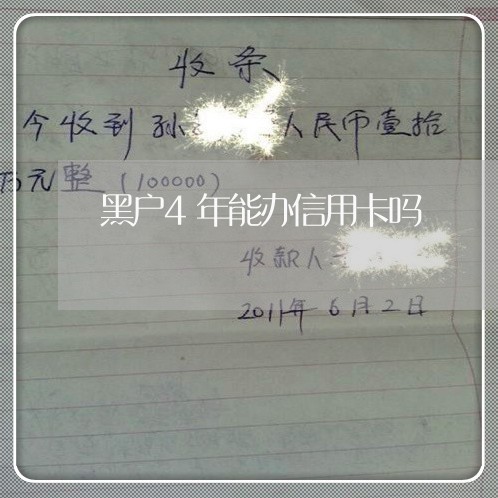 收条
今收到孙 人民币壹拾
万元整（100000）
黑户4年能办信用卡吗
收款人
2011年6月2日